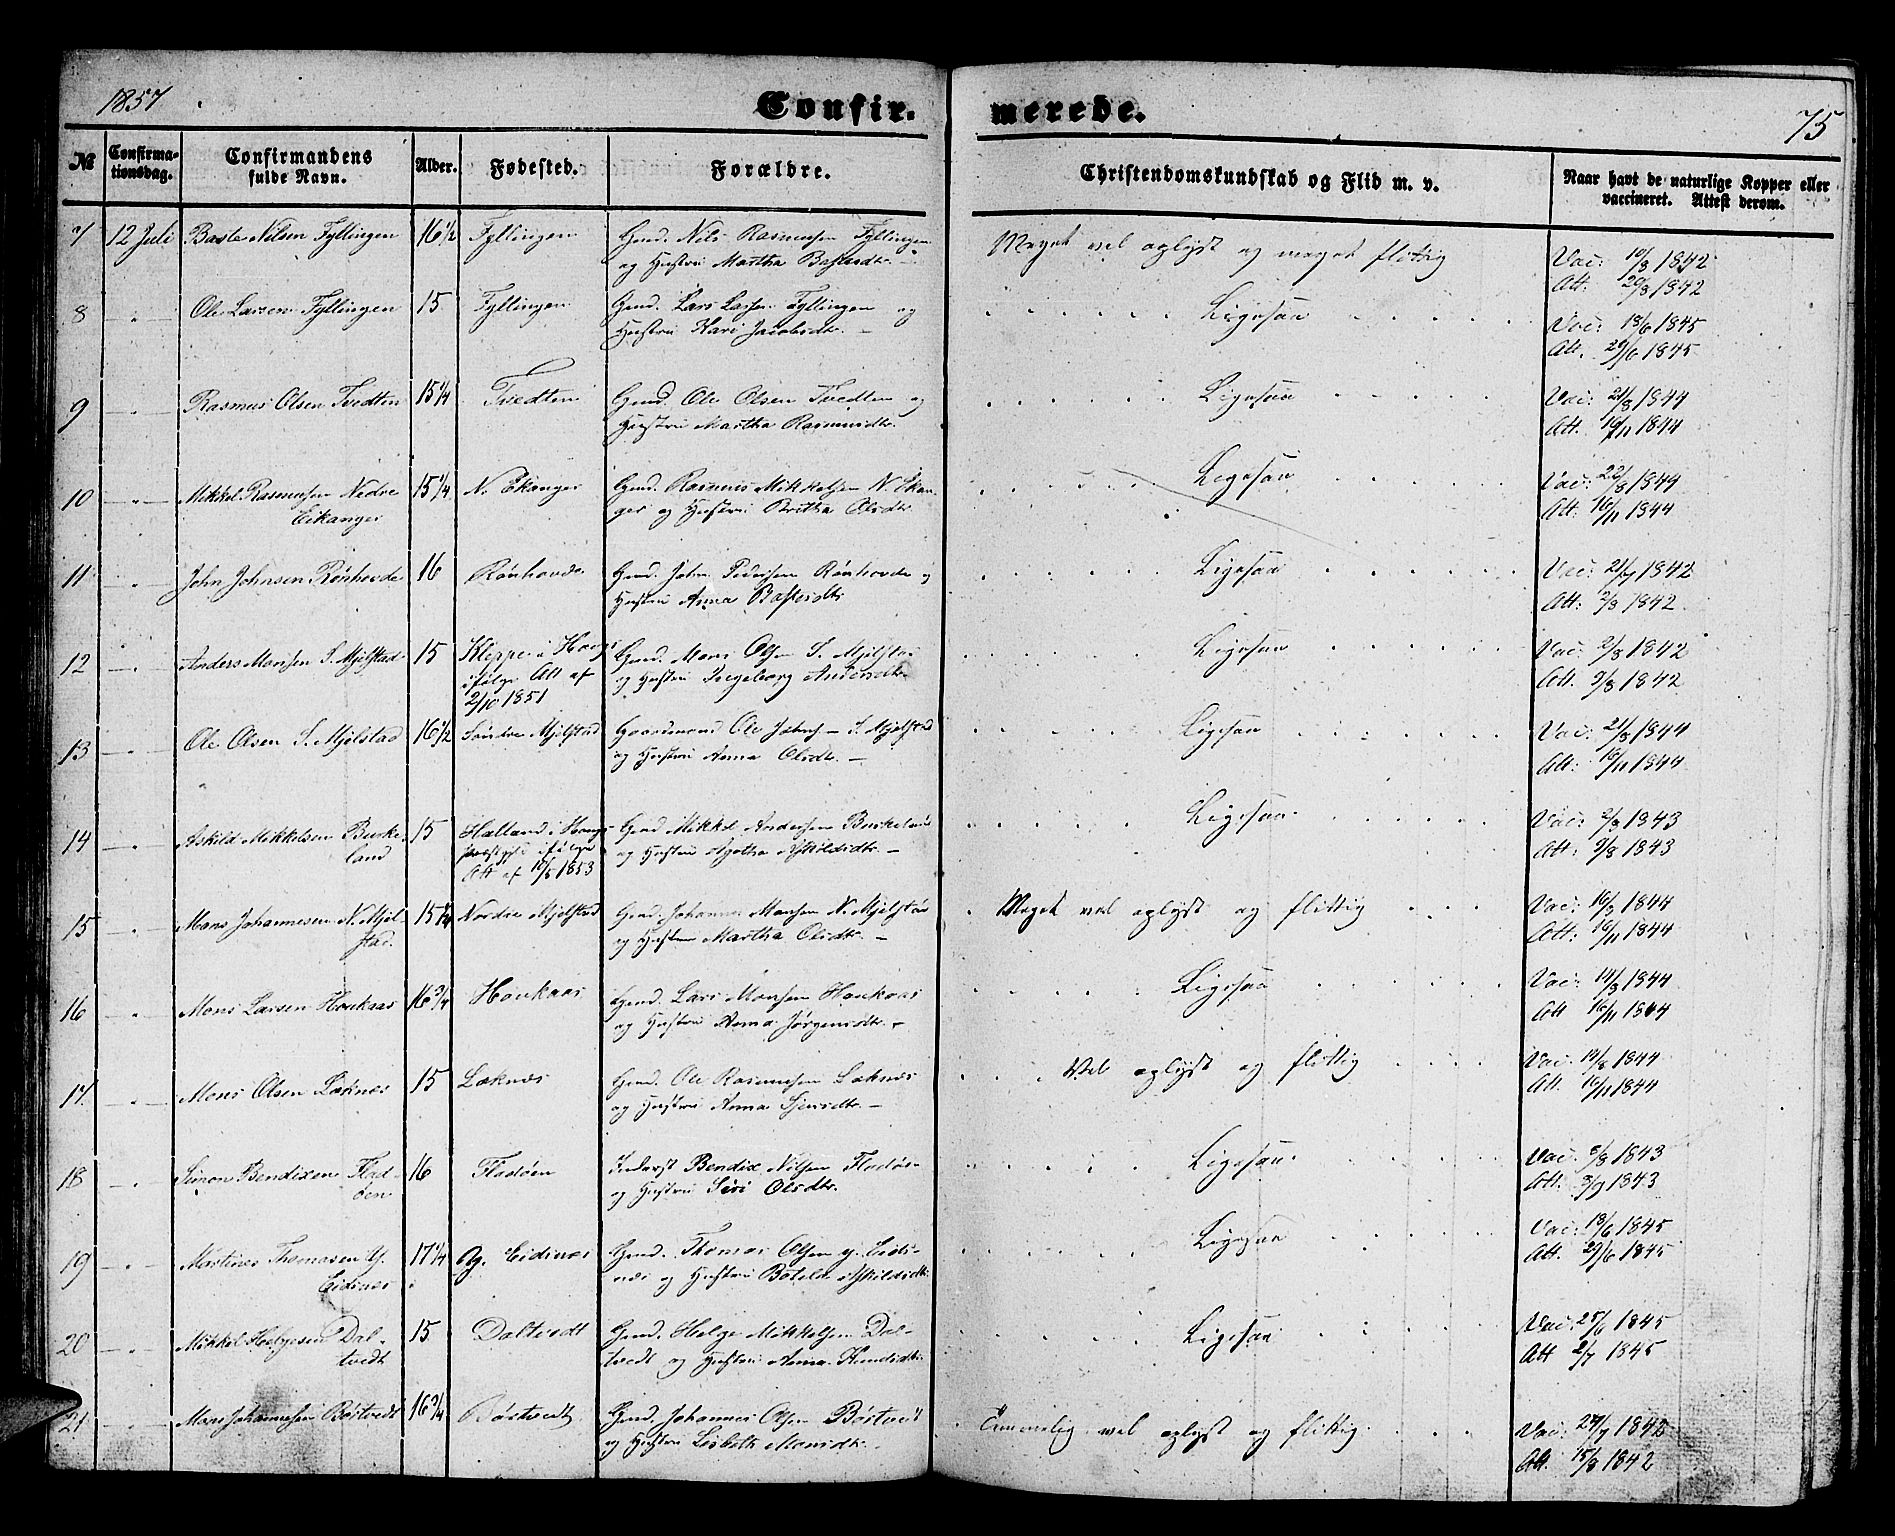 1857
Confir.
merede.
75
№
Confirma-
tionsdag.
Confirmandens
fulde Navn.
Alder.
Fødested.
Forældre.
Christendomskundskab og Flid m. v.
Naar havt de naturlige Kopper eller
vaccineret. Attest derom.
7 12 Juli Baste Nilsen Fyllingen 16 1/2 Fyllingen Gmd. Nils Rasmusen Fyllingen
og Hustru Martha Bastesdtr.
Meget vel oplyst og meget flittig
Vac: 10/3 1842
Att: 20/3 1842
8 " Ole Larsen Fyllingen 15 Fyllingen Gmd. Lars Larsen Fyllingen og
Hustru Kari Jacobsdtr. —
Ligesaa
Vac: 18/6 1845
Att. 29/6 1845
9 " Rasmus Olsen Tvedten 15 1/4 Tvedten Gmd. Ole Olsen Tvedten og
Hustru Martha Rasmusdtr.
Ligesaa
Vac: 21/8 1844
Att. 16/11 1844
10 " Mikkel Rasmusen Nedre
Eikanger
15 1/4 N. Ekanger Gmd. Rasmus Mikkelsen N. Ekan-
ger og Hustru Brittha Olsdtr.
Ligesaa
Vac: 22/8 1844
Att: 16/11 1844
11 " John Johnsen Rønhovde 16 Rønhovde Gmd. John Pedersen Rønhovde og
Hustru Anna Bastesdtr
Ligesaa
Vac: 21/7 1842
Att: 2/8 1842
12 " Anders Monsen S. Mjelstad 15 Kleppe i Hougs
ifølge Att af
2/10 1851
Gmd. Mons Olsen S. Mjelstad
og Hustru Ingeborg Andersdtr.
Ligesaa
Vac: 2/8 1842
Att. 9/8 1842
13 " Ole Olsen S. Mjelstad 16 1/2 Søndre Mjelstad Gaardmand Ole Johns — S. Mjelstad
og Hustru Anna Olsdtr. —
Ligesaa
Vac: 21/8 1844
Att: 16/11 1844
14 " Askild Mikkelsen Burke-
land
15 Hælland i Hougs
Præstegjeld ifølge
Att af 10/5 1853
Gmd Mikkel Andersen Burkeland
og Hustru Agatha Askildsdtr. —
Ligesaa
Vac: 2/8 1843
Att: 9/8 1843
15 " Mons Johannesen N. Mjel-
stad.
15 1/4 Nordre Mjelstad Gmd. Johannes Monsen N. Mjelstad
og Hustru Martha Olsdtr. —
Meget vel oplyst og flittig
Vac: 16/3 1844
Att: 16/11 1844
16 " Mons Larsen Houkaas 16 3/4 Houkaas Gmd. Lars Monsen Houkaas
og Hustru Anna Jørgensdtr. —
Ligesaa
Vac: 14/3 1844
Att 16/11 1844
17 " Mons Olsen Løknes 15 Løknes Gmd. Ole Rasmusen Løknes
og Hustru Anna Sjursdtr. —
Vel oplyst og flittig
Vac: 14/8 1844
Att. 16/11 1844
18 " Simon Bendixen Flad-
øen
16 Fladøen Inderst Bendix Nilsen Fladøe-
og Hustru Siri Olsdtr.
Ligesaa
Vac: 8/8 1843
Att. 3/9 1843
19 " Martines Thomasen Y.
Eidsnes
17 1/4 Y. Eidsnes Gmd. Thomas Olsen y. Eids-
nes og Hustru Botele Askildsdtr.
Ligesaa
Vac: 18/6 1845
Att. 29/6 1845
20 " Mikkel Helgesen Dal-
tvedt
15 Daltvedt Gmd. Helge Mikkelsen Dal-
tvedt og Hustru Anna Knudsdtr.
Ligesaa
Vac: 25/6 1845
Att 2/7 1845
21 " Mons Johannesen Børtvedt 16 3/4 Børtvedt Gmd. Johannes Olsen Børtvedt
og Hustru Lisbeth Monsdtr. —
Temmelig vel oplyst og flittig
Vac: 24/7 1842
Att. 15/8 1842